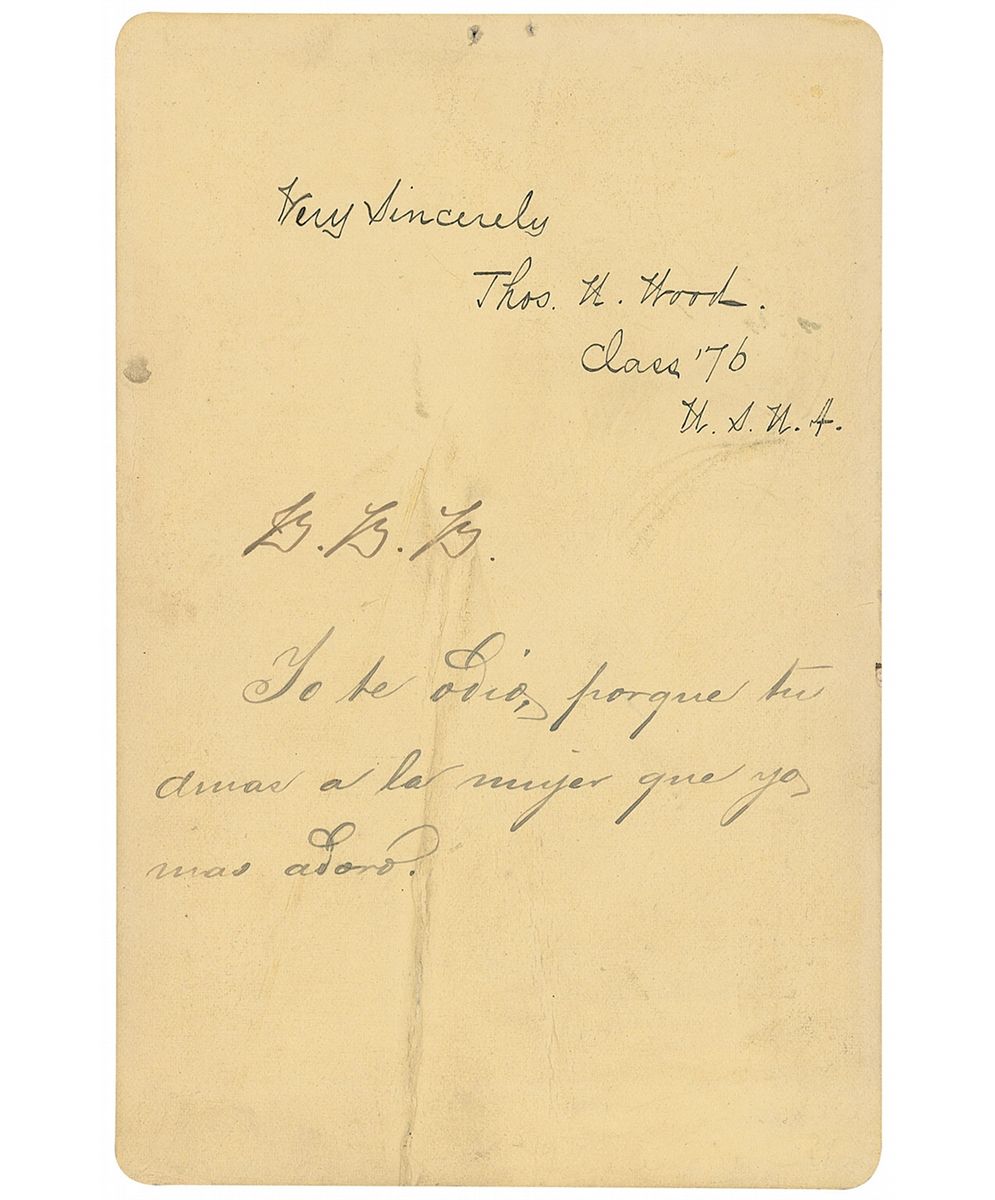 Very Sincerely
Thos. N. Wood.
Class '76
U. S. N. A.
B. B. B.
Yo te odio, porque tu
amas a la mujer que yo
mas adoro.